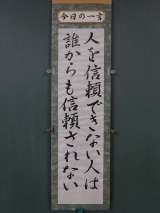 今日の一言
人を信頼できない人は
誰からも信頼されない